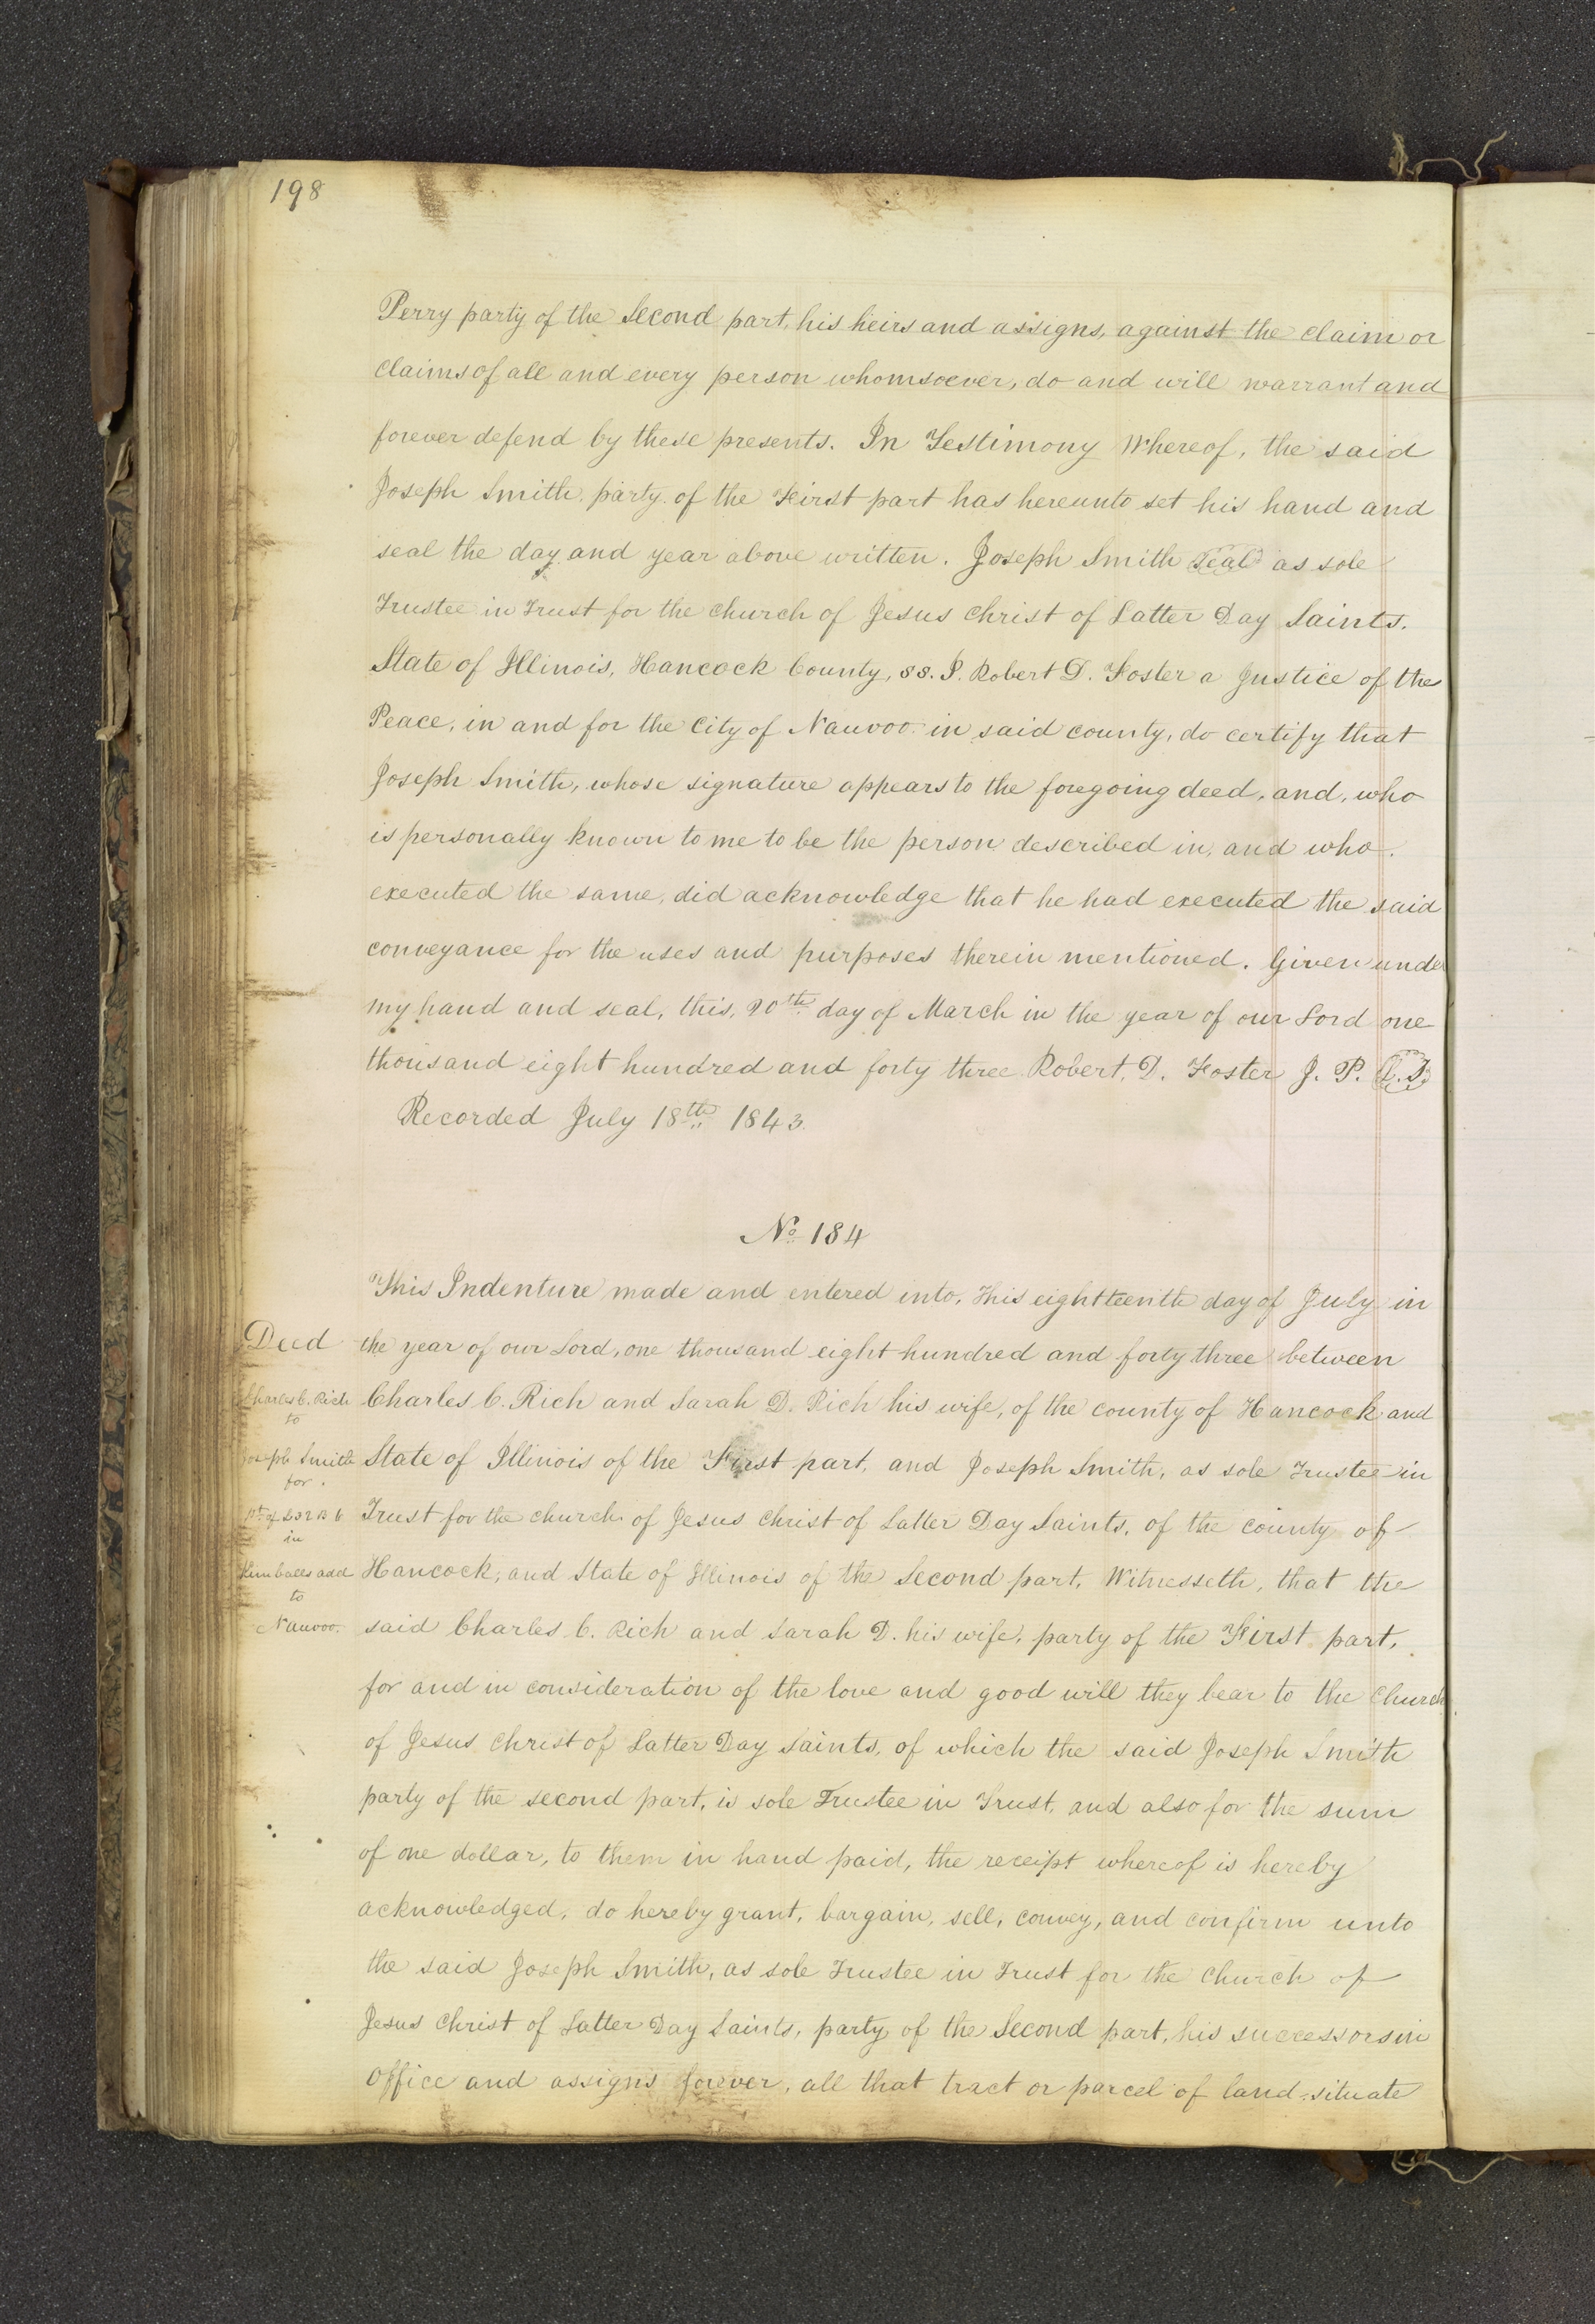 198
Perry party of the Second part, his heirs and assigns, against the claim or
claims of all and every person whomsoever, do and will warrant and
forever defend by these presents. In Testimony Whereof, the said
Joseph Smith, party of the First part has hereunto set his hand and
seal the day and year above written. Joseph Smith Seal as sole
Trustee in Trust for the church of Jesus Christ of Latter Day Saints.
State of Illinois, Hancock County, ss. I. Robert D. Foster a Justice of the
Peace, in and for the City of Nauvoo in said county, do certify that
Joseph Smith, whose signature appears to the foregoing deed, and, who
is personally known to me to be the person described in, and who
executed the same, did acknowledge that he had executed the said
conveyance for the uses and purposes therein mentioned. Given under
my hand and seal, this, 20th day of March in the year of our Lord one
thousand eight hundred and forty three Robert. D. Foster J. P. L.S.
Recorded July 18th 1843.
No 184
This Indenture made and entered into, this eighteenth day of July in
Deed the year of our Lord, one thousand eight hundred and forty three between
Charles C. Rich Charles C. Rich and Sarah D. Rich his wife, of the county of Hancock and
to
Joseph Smith State of Illinois of the First part, and Joseph Smith, as sole Trustee in
for
Trust for the church of Jesus Christ of Latter Day Saints, of the county of
in
Kimballs add Hancock, and State of Illinois of the Second part, Witnesseth, that the
to
Nauvoo. said Charles C. Rich and Sarah D. his wife, party of the First part,
for and in consideration of the love and good will they bear to the Church
of Jesus Christ of Latter Day Saints, of which the said Joseph Smith
party of the second part, is sole Trustee in Trust, and also for the sum
of one dollar, to them in hand paid, the receipt whereof is hereby
acknowledged, do hereby grant, bargain, sell, convey, and confirm unto
the said Joseph Smith, as sole Trustee in Trust for the Church of
Jesus Christ of Latter Day Saints, party of the Second part, his successors in
office and assigns forever, all that tract or parcel of land situate